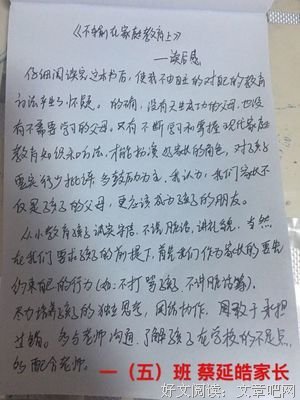 《不输在家庭教育上》
——读后感
仔细阅读完这本书后，使我不由自主的对自己的教育
方法产生了怀疑。的确，没有天生成功的父母，也没
有不需要学习的父母。只有不断学习和掌握现代家庭
教育知识和方法，才能扮演好家长的角色，对孩子
要实行少批评，多鼓励为主。我认为，我们家长不
仅是孩子的父母，更应该成为孩子的朋友。
从小教育孩子诚实守信、不说脏话、讲礼貌。当然
在我们要求孩子的前提下，首先我们作为家长的要先
约束自己的行为（如：不打骂孩子，不讲脏话等）。
尽力培养孩子的独立思考，团结协作，勇敢于承担
多与老师沟通，了解孩子在学校的不足点，
配合老师。
一（五）班 蔡延皓家长
好文阅读：文章吧网